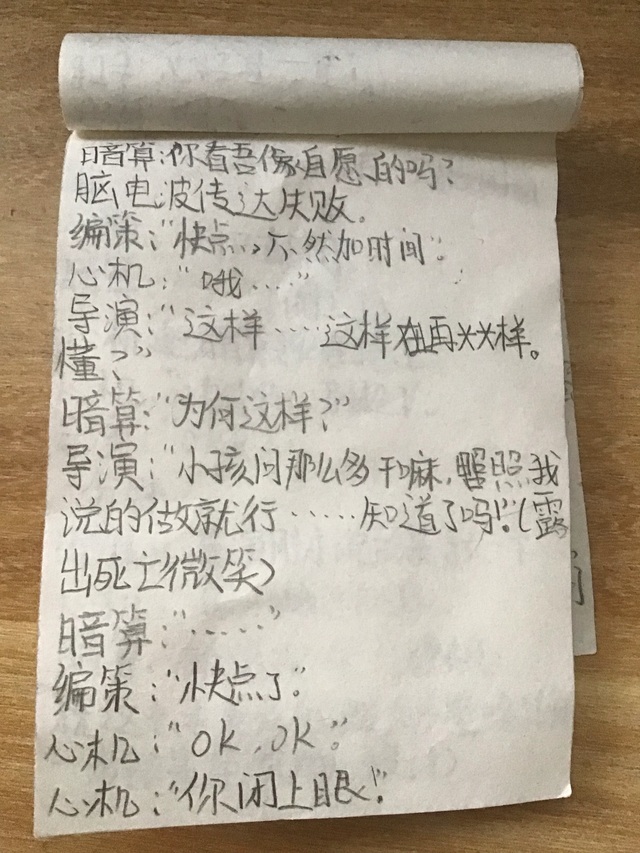 暗算:你看吾像自愿的吗?
脑电波传达失败.
编策:"快点,,不然加时间".
心机:"哦····"
导演:"这样····这样在再××样。
懂?"
暗算:"为何这样?"
导演:"小孩问那么多干嘛,照我
说的做就行·····知道了吗!"(露
出死亡微笑)
暗算:"·····"
编策:"快点了".
心机:"OK,OK".
心机:"你闭上眼!"